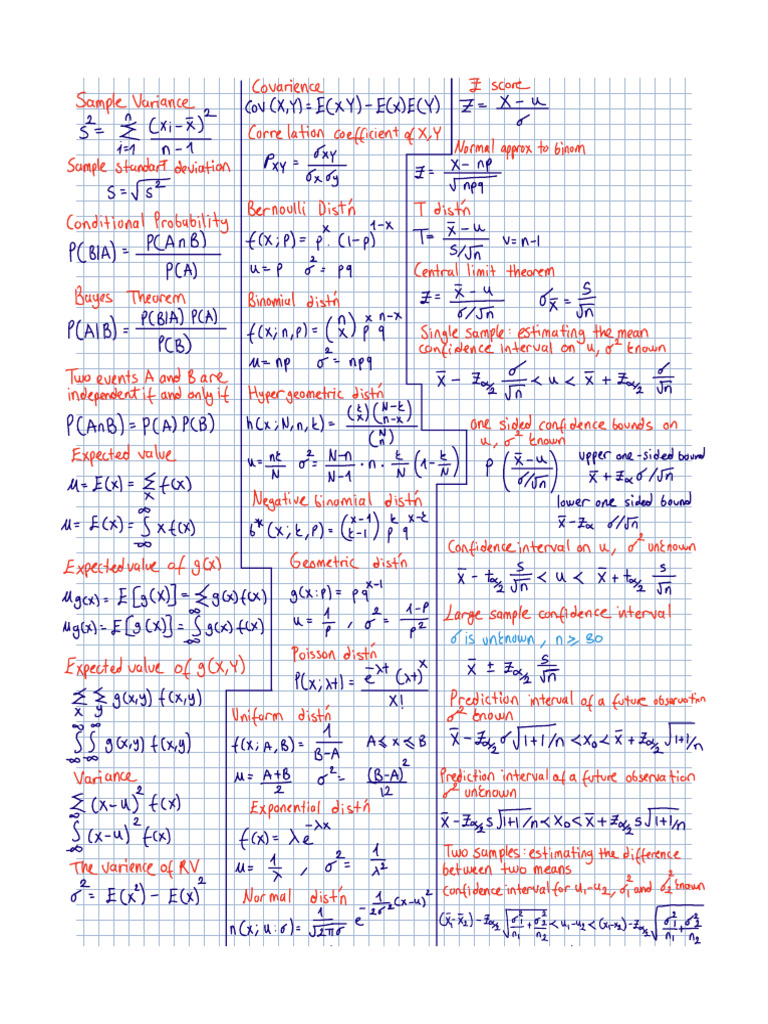 Sample Variance
s² = n Σ i=1 (xi - x̄)² / n - 1
Sample standart deviation
s = √s²
Conditional Probability
P(B|A) = P(A∩B) / P(A)
Bayes Theorem
P(A|B) = P(B|A) P(A) / P(B)
Two events A and B are
independent if and only if
P(A∩B) = P(A) P(B)
Expected value
u = E(x) = Σ x f(x)
u = E(x) = ∞ ∫ -∞ x f(x)
Expected value of g(x)
u g(x) = E[g(x)] = Σ g(x) f(x)
u g(x) = E[g(x)] = ∞ ∫ -∞ g(x) f(x)
Expected value of g(X,Y)
Σ x Σ y g(x,y) f(x,y)
∞ ∫ -∞ ∞ ∫ -∞ g(x,y) f(x,y)
Variance
Σ (x-u)² f(x)
∫ (x-u)² f(x)
The varience of RV
σ² = E(x²) - E(x)²
Covarience
cov(X,Y) = E(XY) - E(x)E(Y)
Correlation coefficient of X,Y
ρxy = σxy / σx σy
Bernoulli Distń
f(x;p) = p^x . (1-p)^1-x
u = p σ² = pq
Binomial distń
f(x;n,p) = (n x) p^x q^n-x
u = np σ² = npq
Hypergeometric distń
h(x;N,n,k) = (k x)(N-k n-x) / (N n)
u = nk / N σ² = N-n / N-1 · n · k / N (1 - k / N)
Negative binomial distń
b*(x;k,p) = (x-1 k-1) p^k q^x-k
Geometric distń
g(x:p) = pq^x-1
u = 1 / p , σ² = 1-p / p²
Poisson distń
P(x;λt) = e^-λt (λt)^x / x!
Uniform distń
f(x;A,B) = 1 / B-A A ≤ x ≤ B
u = A+B / 2 σ² = (B-A)² / 12
Exponential distń
f(x) = λe^-λx
u = 1 / λ , σ² = 1 / λ²
Normal distń
n(x;u:σ) = 1 / √2πσ e^-1/2σ² (x-u)²
Z score
Z = X - u / σ
Normal approx to binom
Z = X - np / √npq
T distń
T = x̄ - u / S/√n v = n-1
Central limit theorem
Z = x̄ - u / σ/√n σx̄ = S / √n
Single sample: estimating the mean
confidence interval on u, σ² known
x̄ - Zα/2 σ / √n < u < x̄ + Zα/2 σ / √n
one sided confidence bounds on
u, σ² known
P (x̄ - u / σ/√n) upper one-sided bound
x̄ + Zα σ/√n
lower one sided bound
x̄ - Zα σ/√n
Confidence interval on u, σ² unknown
x̄ - tα/2 s / √n < u < x̄ + tα/2 s / √n
Large sample confidence interval
σ is unknown, n ≥ 30
x̄ ± Zα/2 s / √n
Prediction interval of a future observation
σ² known
x̄ - Zα/2 σ √1+1/n < x₀ < x̄ + Zα/2 √1+1/n
Prediction interval of a future observation
σ² unknown
x̄ - Zα/2 s √1+1/n < x₀ < x̄ + Zα/2 s √1+1/n
Two samples: estimating the difference
between two means
Confidence interval for u₁-u₂, σ₁² and σ₂² known
(x̄₁-x̄₂) - Zα/2 √σ₁²/n₁ + σ₂²/n₂ < u₁-u₂ < (x₁-x₂) - Zα/2 √σ₁²/n₁ + σ₂²/n₂